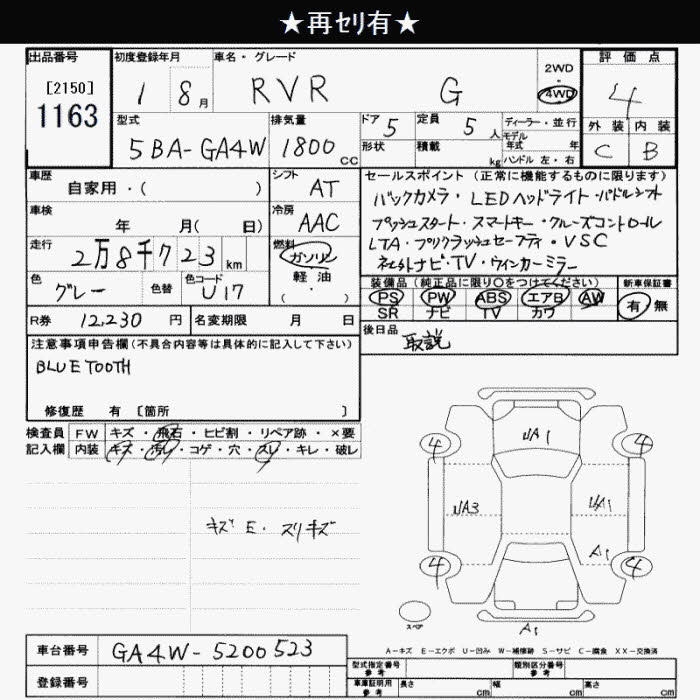 ★再ｾﾘ有★
出品番号
[2150]
1163
初度登録年月
1 8月
車名・グレード
RVR G
2WD
・
4WD
評価点
4
外装 内装
C B
型式
5BA-GA4W
排気量
1800 CC
ドア 5
定員 5人
ディーラー・並行
モデル年式 年
形状
積載 kg
ハンドル 左・右
車歴
自家用・( )
シフト
AT
車検
年 月( 日)
冷房
AAC
走行
2万8千723km
燃料
ガソリン
軽・油
(・)
色
グレー
色替
色コード
U17
R券 12,230円
名変期限 月 日
セールスポイント (正常に機能するものに限ります)
バックカメラ・LEDヘッドライト・パドルシフト
プッシュスタート・スマートキー・クルーズコントロール
LTA・プリクラッシュセーフティ・VSC
ナビ・TV・ウィンカーミラー
装備品 (純正品に限り○をつけてください)
PS PW ABS エアB AW
SR ナビ TV カワ
新車保証書
有・無
後日品
取説
注意事項申告欄(不具合内容等は具体的に記入して下さい)
BLUETOOTH
修復歴 有 [箇所 ]
検査員
記入欄
FW キズ・飛石・ヒビ割・リペア跡・×要
内装 キズ・汚れ・コゲ・穴・スレ・キレ・破レ
キズ E・スリキズ
4 4
UA1
UA3 UA1
A1
4 4
スペア
A1
A-キズ E-エクボ U-凹み W-補修跡 S-サビ C-腐食 XX-交換済
車台番号
GA4W-5200523
登録番号
型式指定番号
参考
類別区分番号
参考
車庫証明用
参考
長さ cm
幅 cm
高さ cm